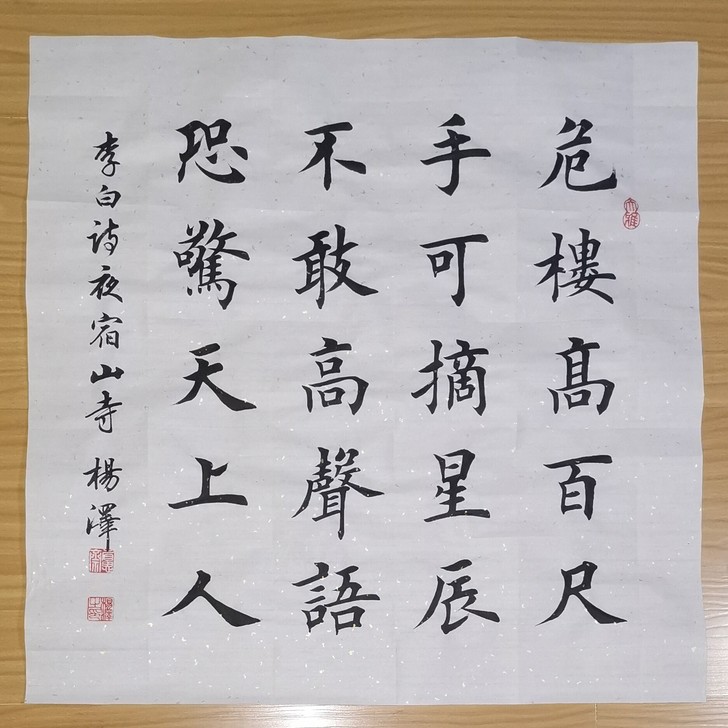 危樓髙百尺
手可摘星辰
不敢高聲語
恐驚天上人
李白詩夜宿山寺 楊澤